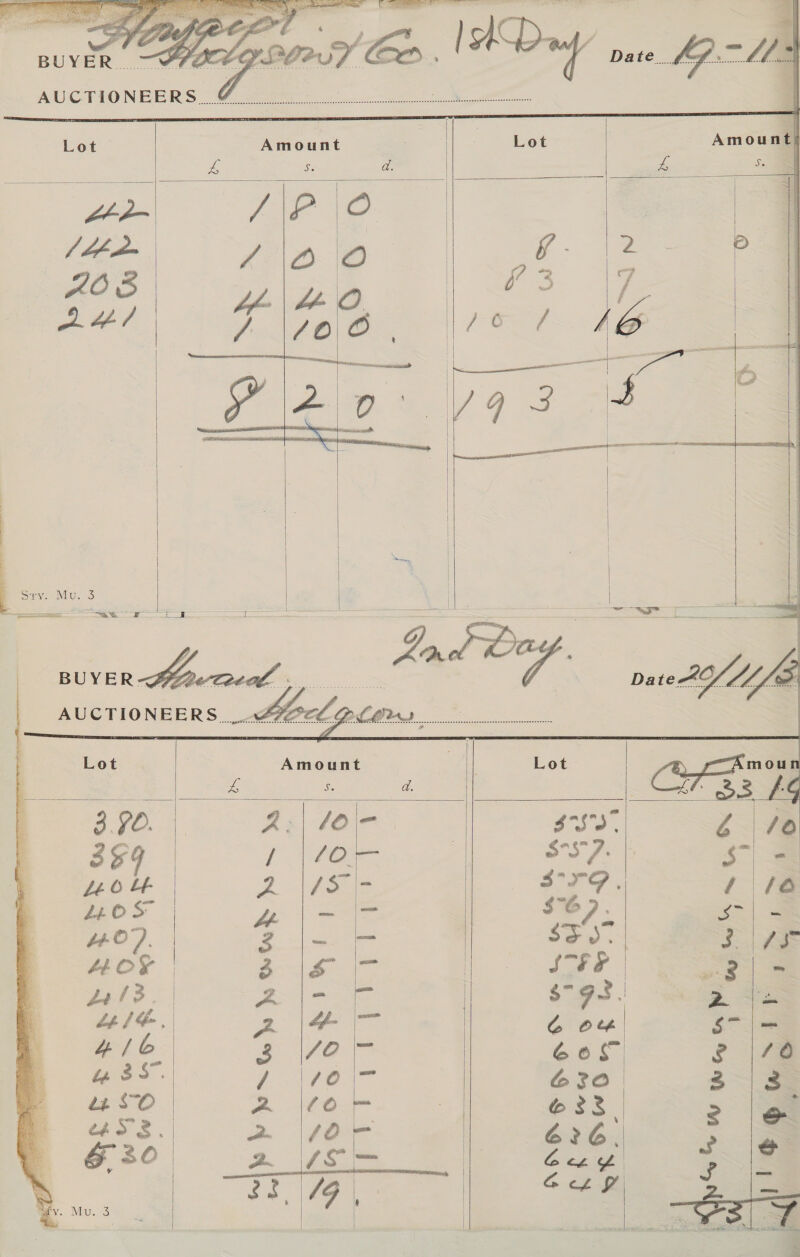 Hodgson & Co. 1st Day
BUYER Date 19-11
AUCTIONEERS
Lot Amount Lot Amount
£ s. d. £ s.
42 1 8 0
142 1 0 0 8 - 2 0
203 4 4 0 83 7
241 1 10 0 101 16
8 2 0 193 5 0
Srv. Mu. 3
2nd Day.
BUYER Date 20/11/3
AUCTIONEERS Hodgsons
Lot Amount Lot Amoun
£ s. d. CF. 33 19
380. 2 10 - 555. 6 10
389 1 10 - 557. 5 -
404 2 15 - 559. 1 10
405 4 - - 567. 5 -
407. 3 - - 575. 3 15
408 3 5 - 588 3 -
413. 2 - - 593. 2 -
414. 2 4 - 604 5 -
416 3 10 - 605 3 10
435. 1 10 - 630 3 3
450 2 10 - 633 3 0
453. 2 10 - 636. 3 0
530 2 15 - 644 3 -
33, 19, 648 2 -
Srv. Mu. 3 83 7